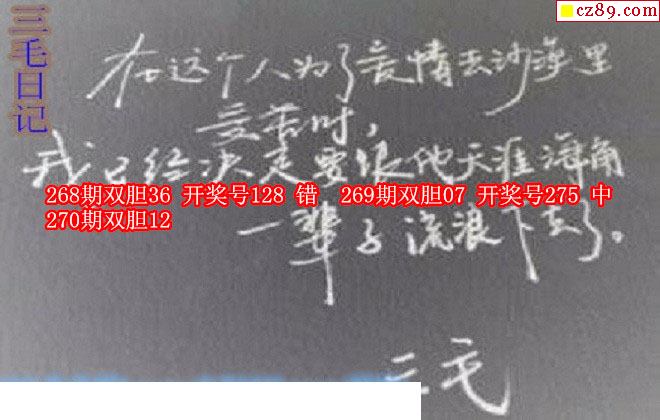 cz89.com
三毛日记
在这个人为了爱情去沙漠里
受苦时,
我已经决定要跟他天涯海角
268期双胆36 开奖号128 错 269期双胆07 开奖号275 中
270期双胆12
一辈子流浪下去了。
三毛